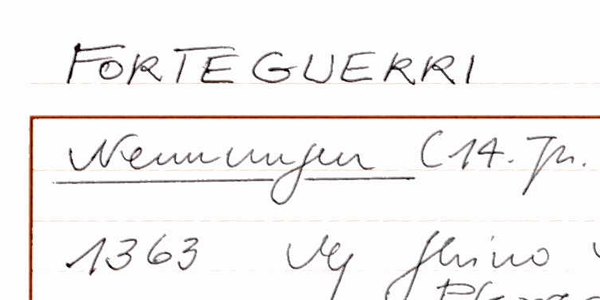 FORTEGUERRI
Nennungen (14. Jh.
1363 Vg Ghino